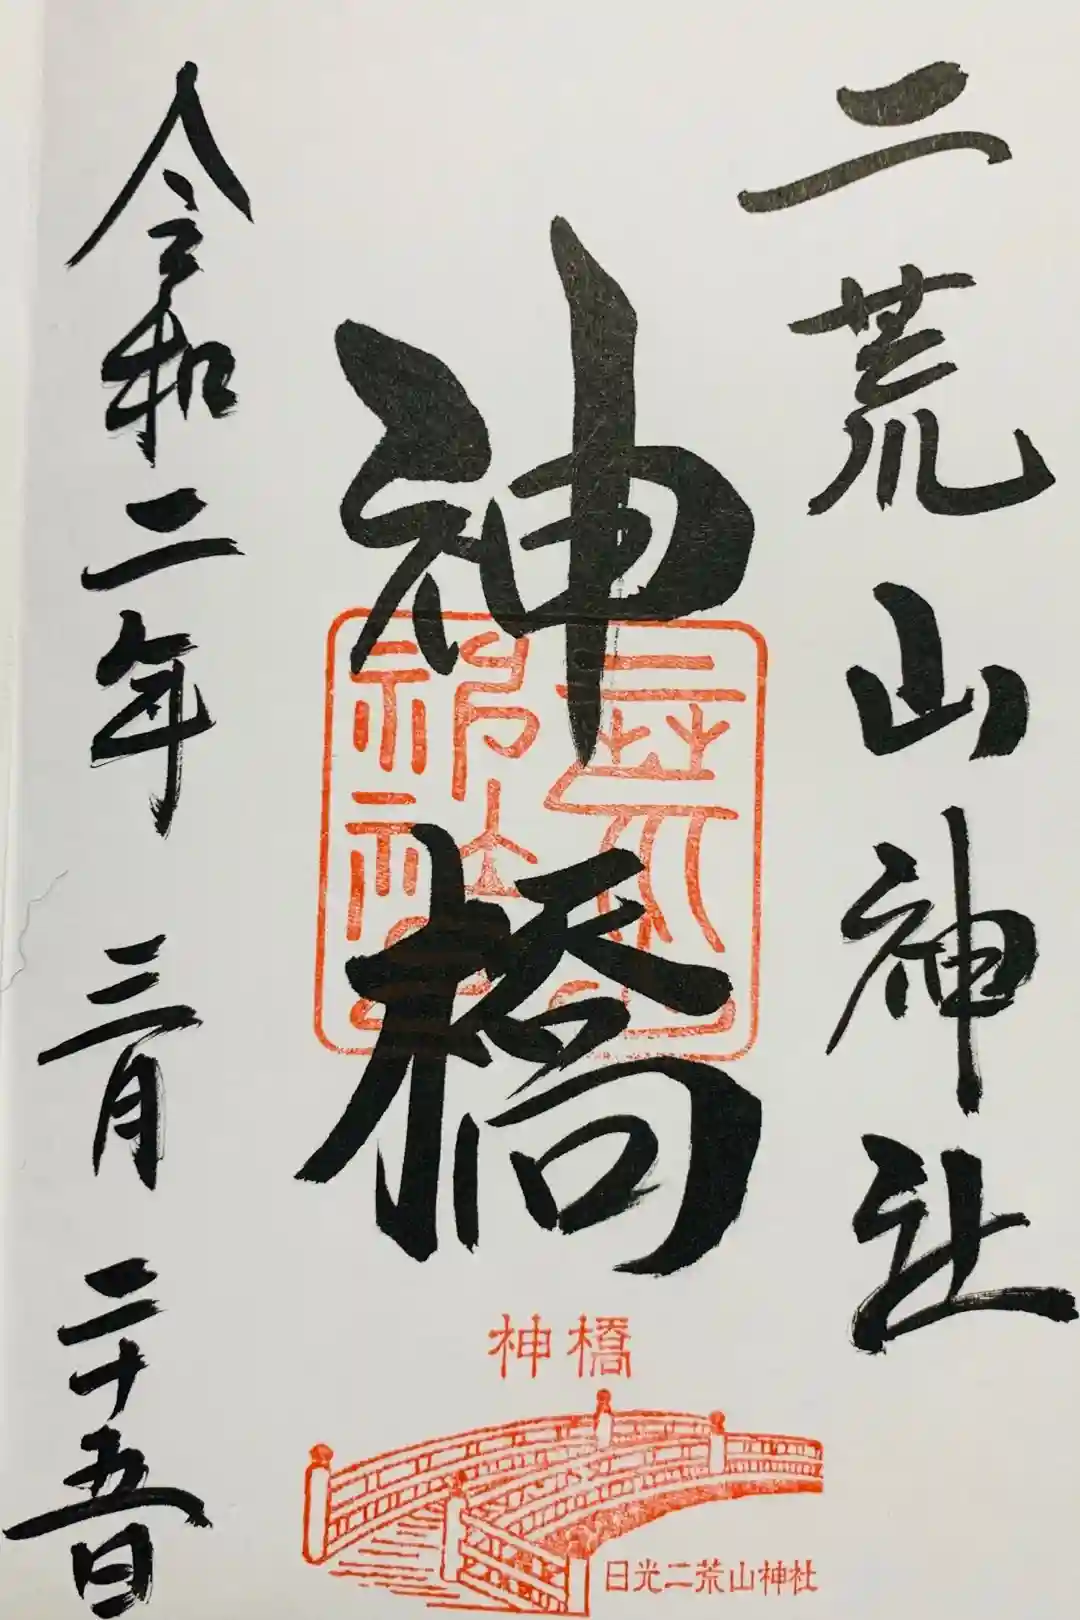 二荒山神社
神橋
令和二年三月二十五日
神橋
日光二荒山神社